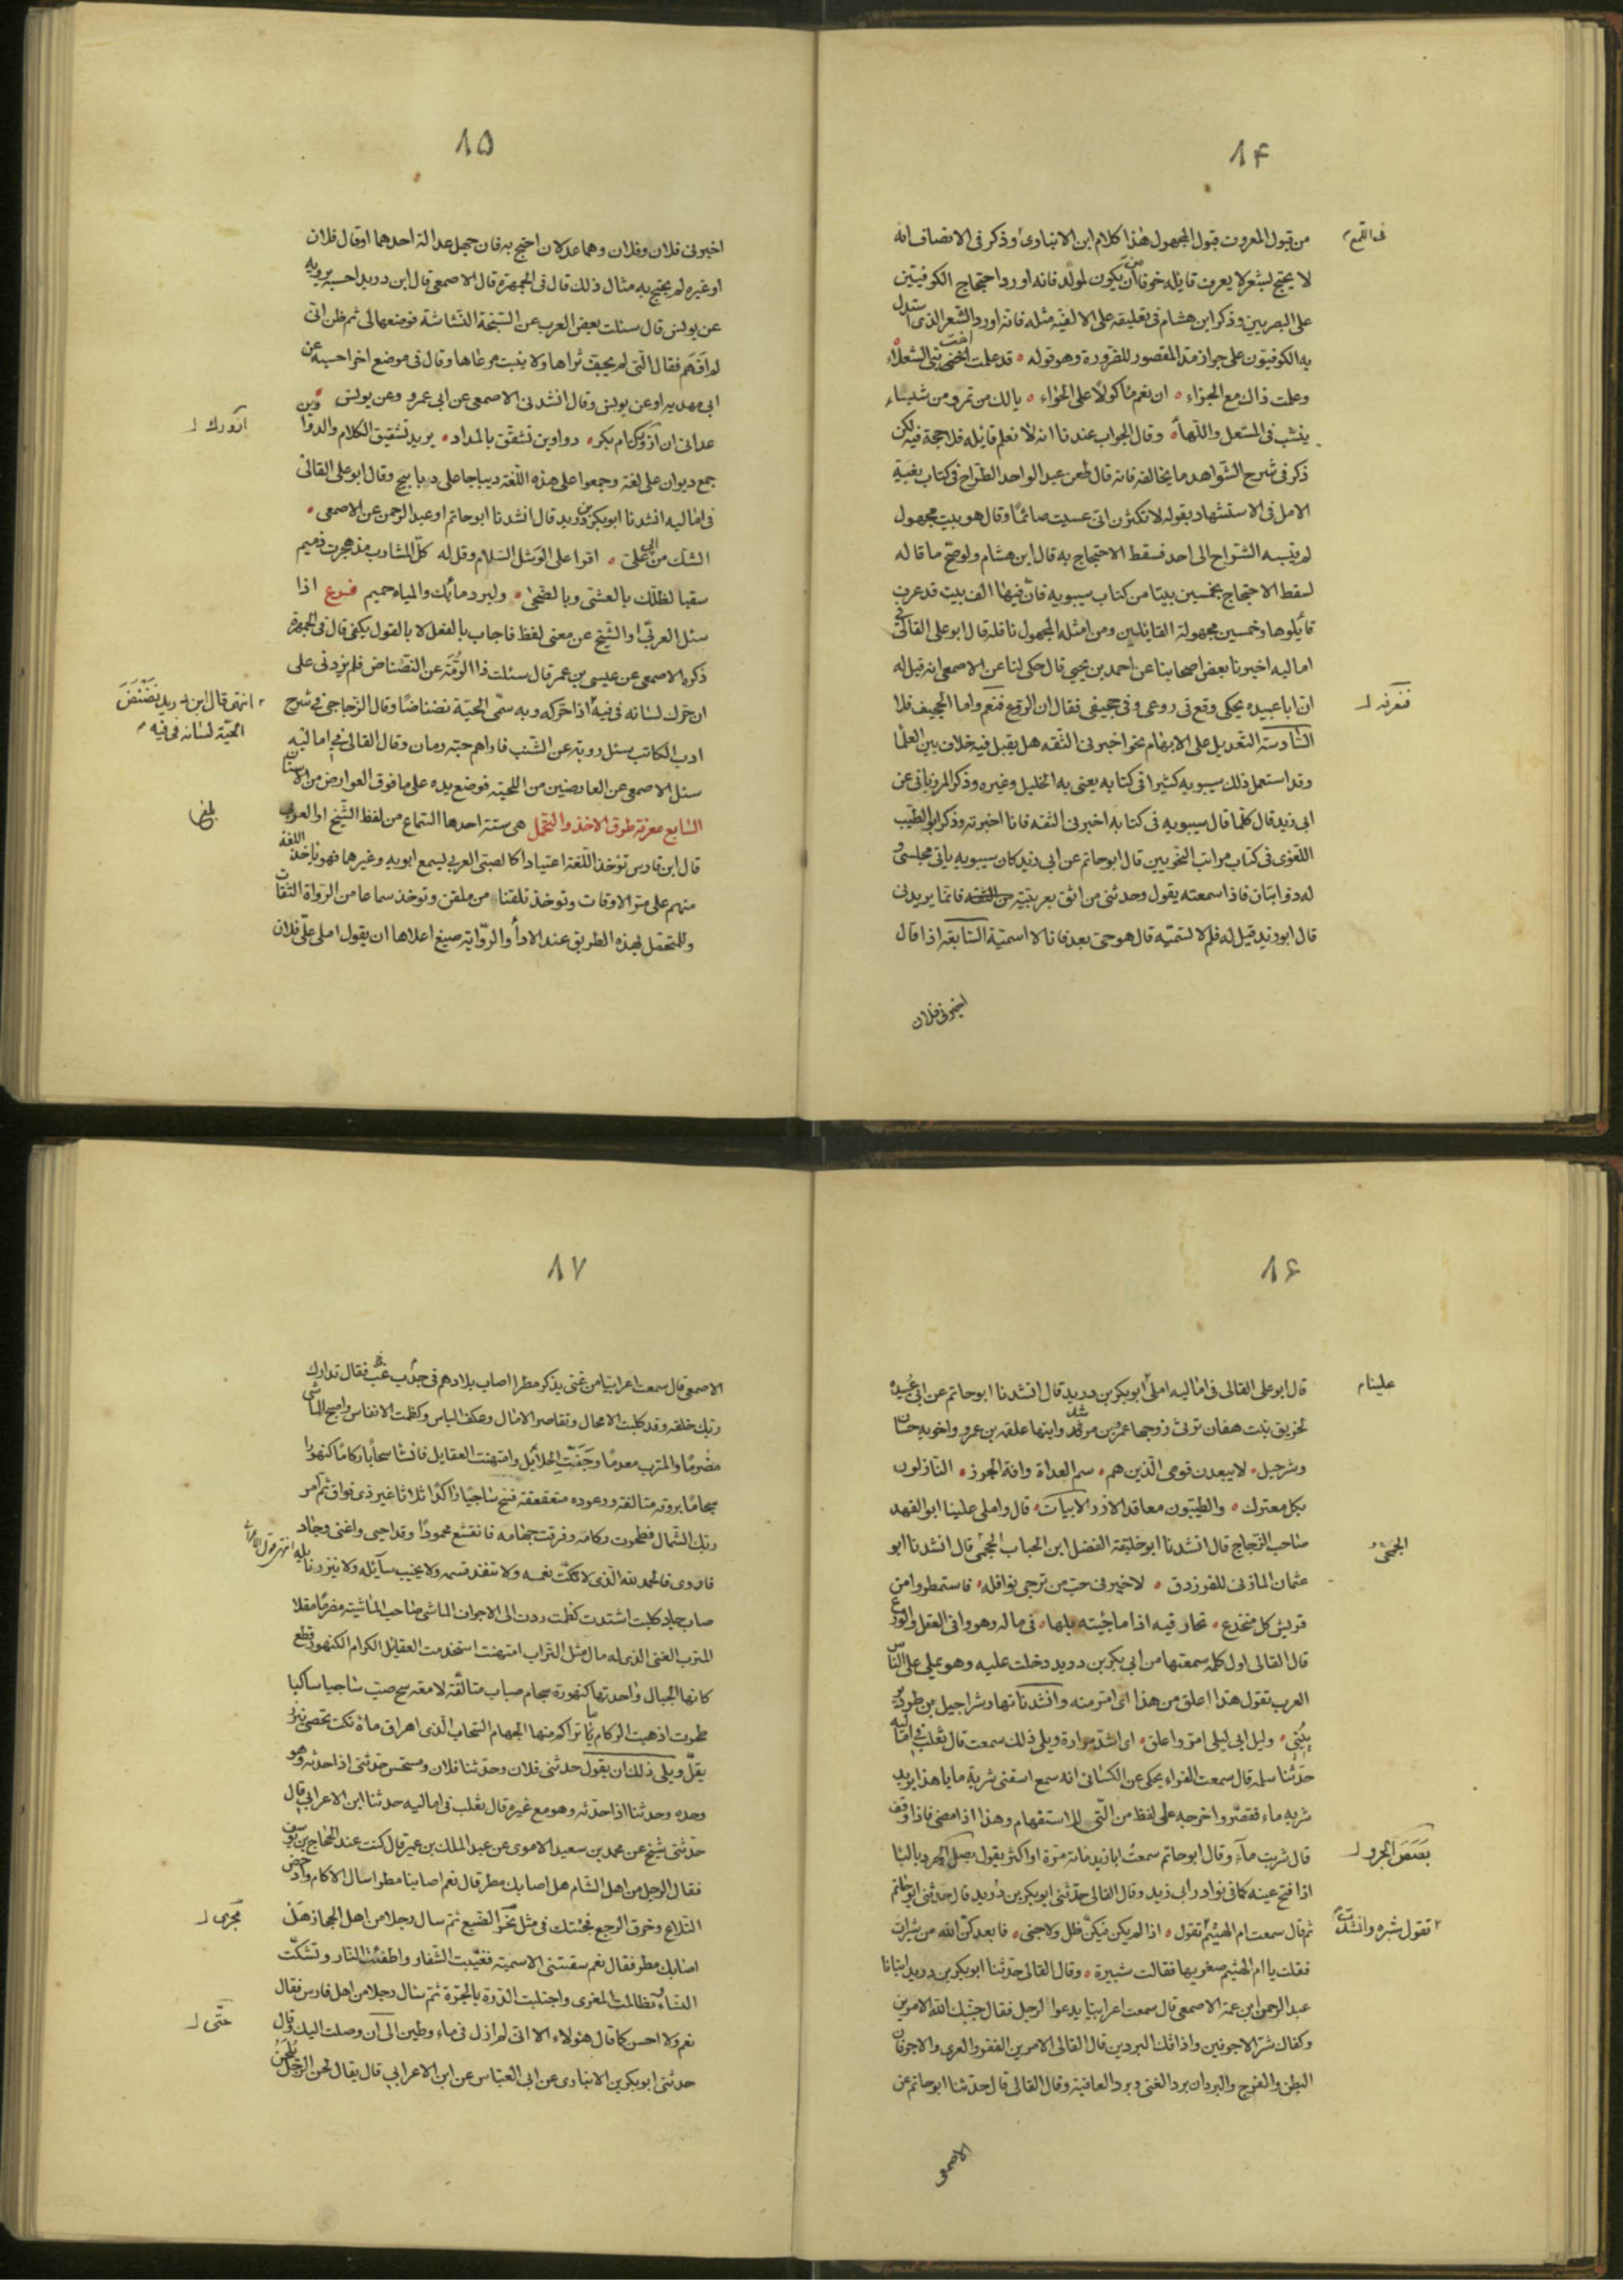 ١٤
فى اللمع م
من قبول المعروف قبول المجهول هذا كلام ابن الانبارى وذكر فى الانصاف انه
لا يحتج بشعر لا يعرف قايله خوفا من ان يكون لمولد فانه اورد احتجاج الكوفيين
على البصريين وذكر ابن هشام فى تعليقه على الالفيه مثله فانه اورد الشعر الذى استدل
به الكوفيون على جواز مد المقصور للضرورة وهو قوله قد علمت اخت بنى السعلاء
وعلمت ذاك مع الجزاء ان نعم مأكولا على الخواء يا لك من تمر ومن شيشاء
ينشب فى المسعل واللهاء وقال الجواب عندنا انه لا نعلم قايله فلا حجة فيه لكن
ذكر فى شرح الشواهد ما يخالفه فانه قال طعن عبد الواحد الطراح فى كتاب بغية
الامل فى الاستشهاد بقوله لا تكثرن انى عسيت صائما وقال هو بيت مجهول
لم ينسبه الشراح الى احد فسقط الاحتجاج به قال ابن هشام ولو صح ما قاله
لسقط الاحتجاج بخمسين بيتا من كتاب سيبويه فان فيها الف بيت قد عرف
قائلوها وخمسين مجهولة القائلين ومن امثله المجهول ناقله قال ابو على القالى فى
اماليه اخبرنا بعض اصحابنا عن احمد بن يحيى قال حكى لنا عن الاصمعى انه قيل له
ان ابا عبيده يحكى وقع فى روعى وفى جخيفى فقال ان الروع فنعم واما الجخيف فلا
فنعرفه ل
السادسة التعديل على الابهام نحو اخبرنى الثقه هل يقبل فيه خلاف بين العلما
وقد استعمل ذلك سيبويه كثيرا فى كتابه يعنى به الخليل وغيره وذكر المرزبانى عن
ابى زيد قال كلما قال سيبويه فى كتابه اخبرنى الثقه فانا اخبرته وذكر ابو الطيب
اللغوى فى كتاب مراتب النحويين قال ابو حاتم عن ابى زيد كان سيبويه ياتى مجلسى و
له ذوابتان فاذا سمعته يقول وحدثنى من اثق بعربيته فانما يريدنى
قال ابو زيد قيل له فلم لا تسميه قال هو حى بعد فانا لا اسميه السابعه اذا قال
اخبرنى فلان
١٥
اخبرنى فلان وفلان وهما عدلان احتج به فان جهل عدالة احدهما او قال فلان
او غيره لم يحتج به مثال ذلك قال فى الجمهرة قال الاصمعى قال ابن دريد احسبه يرويه
عن يونس قال سئلت بعض العرب عن السبخة النشاشة فوضعها لى ثم ظن انى
لم افهم فقال التى لم يجف ثراها ولا ينبت مرعاها وقال فى موضع اخر احسبه عن
ابى مهديه او عن يونس وقال انشدنى الاصمعى عن ابى عمرو وعن يونس
عدانى ان ازورك ام بكر دواوين تشقق بالمداد يريد تشقيق الكلام والدواوين
ازورك ل
جمع ديوان على لغة وجمعوا على هذه اللغة ديباجا على ديابيج وقال ابو على القالى
فى اماليه انشدنا ابو بكر بن دريد قال انشدنا ابو حاتم او عبد الرحمن عن الاصمعى
الشك من ابى على اقرا على الوشل السلام وقل له كل المشارب مذ هجرت ذميم
سقيا لظلك بالعشى وبالضحى ولبرد مائك والمياه حميم فرع اذا
سئل العربى او الشيخ عن معنى لفظ فاجاب بالفعل لا بالقول يكفى قال فى الجمهرة
ذكر الاصمعى عن عيسى بن عمر قال سئلت ذا الرمة عن النضناض فلم يزدنى على
ان حرك لسانه فى فيه اذا حركه وبه سمى الحية نضناضا وقال الزجاجى فى شرح
انتهى قال ابن دريد نضنض
الحية لسانه فى فيه م
ادب الكاتب سئل رويه عن الشنب فاراهم حبة رمان وقال القالى فى اماليه
سئل الاصمعى عن العارضين من اللحية فوضع يده على ما فوق العوارض من الاسنان
السابع معرفة طرق الاخذ والتحمل هى ستة احدها السماع من لفظ الشيخ او العربى
قال ابن فارس تؤخذ اللغة اعتيادا كالصبى العربى يسمع ابويه وغيرهما فهو ياخذ اللغة
منهم على مر الاوقات وتوخذ تلقنا من ملقن وتوخذ سماعا من الرواة الثقات
وللتحمل بهذه الطريق عند الادأ والرواية صيغ اعلاها ان يقول املى على فلان
١٦
علينا م
قال ابو على القالى فى اماليه املى ابو بكر بن دريد قال انشدنا ابو حاتم عن ابى عبيده
لخرنق بنت هفان ترثى زوجها عمرو بن مرثد وابنها علقمه بن عمرو واخويه حسان
وشرحبيل لا يبعدن قومى الذين هم سم العداة وافة الجزر النازلون
بكل معترك والطيبون معاقد الازر الابيات قال واملى علينا ابو الفهد
صاحب الزجاج قال انشدنا ابو خليفة الفضل ابن الحباب الجمحى قال انشدنا ابو
الجمحى
عثمان المازنى للفرزدق لا خير فى حب من ترجى نوافله فاستمطروا من
قريش كل منخدع تخال فيه اذا ما جئته بلها فى ماله وهو وافى العقل والورع
قال القالى اول كلمه سمعتها من ابى بكر بن دريد دخلت عليه وهو يملى على الناس
العرب تقول هذا اعلق من هذا اى امر منه وانشدنا نهار شراحيل بن طود
وليل ابى ليلى امر واعلق اى اشد مرارة ويلى ذلك سمعت قال ثعلب فى اماليه
حدثنا سلمه قال سمعت الفراء يحكى عن الكسائى انه سمع اسقنى شربة ما يا هذا يريد
شربه ماء فقصر واخرجه على لفظ من التى للاستفهام وهذا اذا مضى فاذا وقف
قال شربت ماء وقال ابو حاتم سمعت ابا زيد مرة او اكثر يقول بصص الجرو باليا
بصص الجرو ل
اذا فتح عينه كما فى نوادر ابى زيد وقال القالى حدثنى ابو بكر بن دريد قال حدثنى ابو حاتم
ثم قال سمعت ام الهيثم تقول اذا لم يكن فيكن ظل ولا جنى فابعدكن الله من شيرات
تقول شيره وانشدت
فقلت يا ام الهيثم صغريها فقالت شييرة وقال القالى حدثنا ابو بكر بن دريد انبانا
عبد الرحمن ابن عمه الاصمعى قال سمعت اعرابيا يدعوا لرجل فقال جنبك الله الامرين
وكفاك شر الاجوفين واذاقك البردين قال القالى الامرين الفقر والعرى والاجوفان
البطن والفرج والبردان برد الغنى وبرد العافية وقال القالى قال حدثنا ابو حاتم عن
الاصمعى
١٧
الاصمعى قال سمعت اعرابيا من غنى يذكر مطرا اصاب بلادهم فى جدب فقال تدارك
ربك خلقه وقد كلبت الامحال وتقاصر الامال وعكف الياس وكظمت الانفاس واصبح الماشى
مصرما والمترب معدما وجفت الحلائل وامتهنت العقايل فانشا سحابا ركاما كنهورا
سجاما بروقه متالقه ورعوده متقعقعه فسح ساجيا راكدا ثلاثا غير ذى فواق ثم امر
ربك الشمال فطحرت ركامه وفرقت جهامه فانقشع محمودا وقد احيى واغنى وجاد
فاروى فالحمد لله الذى لا تكت نعمه ولا تنفد قسمه ولا يخيب سائله ولا ينزر نايله
صاب جاد كلبت اشتدت كظمت ردت الى الاجواف الماشى صاحب الماشية مصرما مقلا
المترب الغنى الذى له مال مثل التراب امتهنت استخدمت العقائل الكرام الكنهور قطع
كانها الجبال واحدتها كنهورة سجام صباب متالقة لامعه سح صب ساجيا ساكنا
طحرت اذهبت الركام ما تراكم منها الجهام السحاب الذى اهراق ماءه تكت تحصى ينزر
يقل ويلى ذلك ان يقول حدثنى فلان وحدثنا فلان ومستحسن حدثنى اذا حدثه وهو
وحده وحدثنا اذا حدثه وهو مع غيره قال ثعلب فى اماليه حدثنا ابن الاعرابى قال
حدثنى شيخ عن محمد بن سعيد الاموى عن عبد الملك بن عمير قال كنت عند الحجاج بن يوسف
فقال الرجل من اهل الشام هل اصابك مطر قال نعم اصابنا مطر اسال الاكام وادحض
التلاع وخرق الرجع فجئتك فى مثل مجر الضبع ثم سال رجلا من اهل الحجاز هل
مجرى ل
اصابك مطر فقال نعم سقتنى الاسمية فغيبت الشفار واطفئت النار وتشكت
النساء وتظالمت المعزى واجتلبت الدرة بالجرة ثم سئال رجلا من اهل فارس فقال
نعم ولا احسن كما قال هؤلاء الا انى لم ازل فى ماء وطين الى ان وصلت اليك وقال
حتى ل
حدثنى ابو بكر بن الانبارى عن ابى العباس عن ابن الاعرابى قال يقال لحن الرجل يلحن